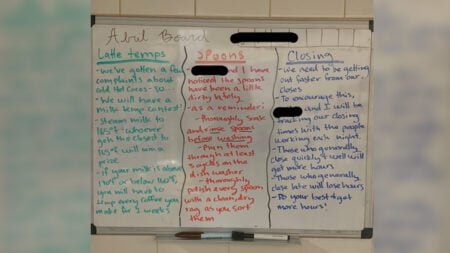 Abul Board
Latte temps
- we've gotten a few
complaints about
odd hot cocos - so
- We will have a
milk temp contest!
- steam milk to
165°F - whoever
gets the closest to
165°F will win a
prize
- if your milk is above
170° or below 160°,
you will have to
temp every coffee you
make for 2 weeks
Spoons
and I have
noticed the spoons
have been a little
dirty lately
- as a reminder:
- Thoroughly soak
and rinse spoons
before washing
- run them
through at least
cycles on the
dish washer
- thoroughly
polish every spoon
with a clean, dry
rag as you sort
them
Closing
- We need to be getting
out faster from our
closes
- To encourage this,
and I will be
tracking our closing
times with the people
working each night.
- Those who generally
close quickly & well will
get more hours
- Those who generally
close late will lose hours
- Do your best & get
more hours!